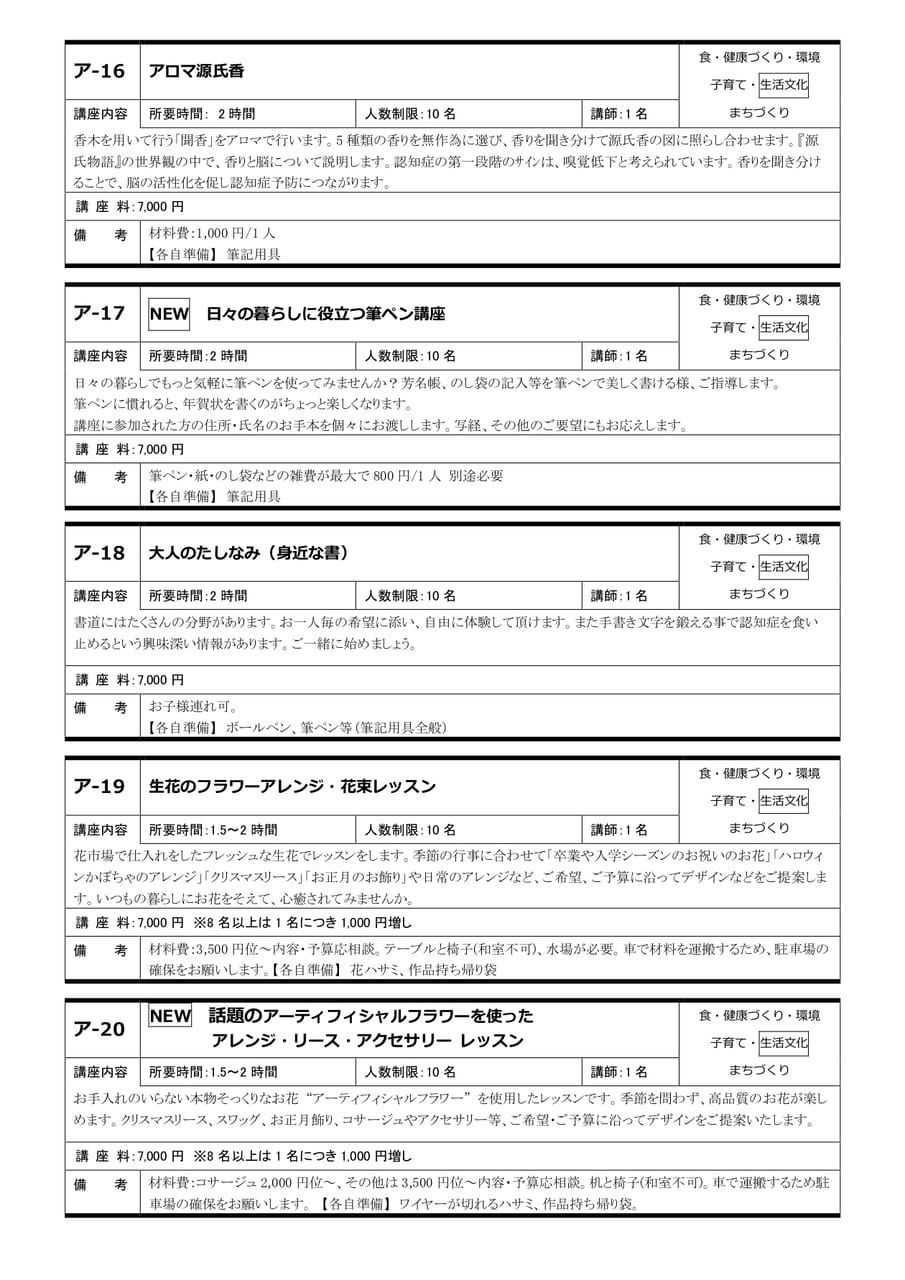 ア-16
アロマ源氏香
食・健康づくり・環境
子育て・生活文化
まちづくり
講座内容
所要時間： 2 時間
人数制限：10 名
講師：1 名
香木を用いて行う「聞香」をアロマで行います。5 種類の香りを無作為に選び、香りを聞き分けて源氏香の図に照らし合わせます。『源
氏物語』の世界観の中で、香りと脳について説明します。認知症の第一段階のサインは、嗅覚低下と考えられています。香りを聞き分け
ることで、脳の活性化を促し認知症予防につながります。
講 座 料：7,000 円
備 考
材料費：1,000 円/1 人
【各自準備】 筆記用具
ア-17
NEW 日々の暮らしに役立つ筆ペン講座
食・健康づくり・環境
子育て・生活文化
まちづくり
講座内容
所要時間：2 時間
人数制限：10 名
講師：1 名
日々の暮らしでもっと気軽に筆ペンを使ってみませんか？芳名帳、のし袋の記入等を筆ペンで美しく書ける様、ご指導します。
筆ペンに慣れると、年賀状を書くのがちょっと楽しくなります。
講座に参加された方の住所・氏名のお手本を個々にお渡しします。写経、その他のご要望にもお応えします。
講 座 料：7,000 円
備 考
筆ペン・紙・のし袋などの雑費が最大で 800 円/1 人 別途必要
【各自準備】 筆記用具
ア-18
大人のたしなみ（身近な書）
食・健康づくり・環境
子育て・生活文化
まちづくり
講座内容
所要時間：2 時間
人数制限：10 名
講師：1 名
書道にはたくさんの分野があります。お一人毎の希望に添い、自由に体験して頂けます。また手書き文字を鍛える事で認知症を食い
止めるという興味深い情報があります。ご一緒に始めましょう。
講 座 料：7,000 円
備 考
お子様連れ可。
【各自準備】 ボールペン、筆ペン等（筆記用具全般）
ア-19
生花のフラワーアレンジ・花束レッスン
食・健康づくり・環境
子育て・生活文化
まちづくり
講座内容
所要時間：1.5～2 時間
人数制限：10 名
講師：1 名
花市場で仕入れをしたフレッシュな生花でレッスンをします。季節の行事に合わせて「卒業や入学シーズンのお祝いのお花」「ハロウィ
ンかぼちゃのアレンジ」「クリスマスリース」「お正月のお飾り」や日常のアレンジなど、ご希望、ご予算に沿ってデザインなどをご提案しま
す。いつもの暮らしにお花をそえて、心癒されてみませんか。
講 座 料：7,000 円 ※8 名以上は 1 名につき 1,000 円増し
備 考
材料費：3,500 円位～内容・予算応相談。テーブルと椅子(和室不可)、水場が必要。車で材料を運搬するため、駐車場の
確保をお願いします。【各自準備】 花ハサミ、作品持ち帰り袋
ア-20
NEW 話題のアーティフィシャルフラワーを使った
アレンジ・リース・アクセサリー レッスン
食・健康づくり・環境
子育て・生活文化
まちづくり
講座内容
所要時間：1.5～2 時間
人数制限：10 名
講師：1 名
お手入れのいらない本物そっくりなお花 “アーティフィシャルフラワー” を使用したレッスンです。季節を問わず、高品質のお花が楽し
めます。クリスマスリース、スワッグ、お正月飾り、コサージュやアクセサリー等、ご希望・ご予算に沿ってデザインをご提案いたします。
講 座 料：7,000 円 ※8 名以上は 1 名につき 1,000 円増し
備 考
材料費：コサージュ 2,000 円位～、その他は 3,500 円位～内容・予算応相談。机と椅子(和室不可)。車で運搬するため駐
車場の確保をお願いします。 【各自準備】 ワイヤーが切れるハサミ、作品持ち帰り袋。